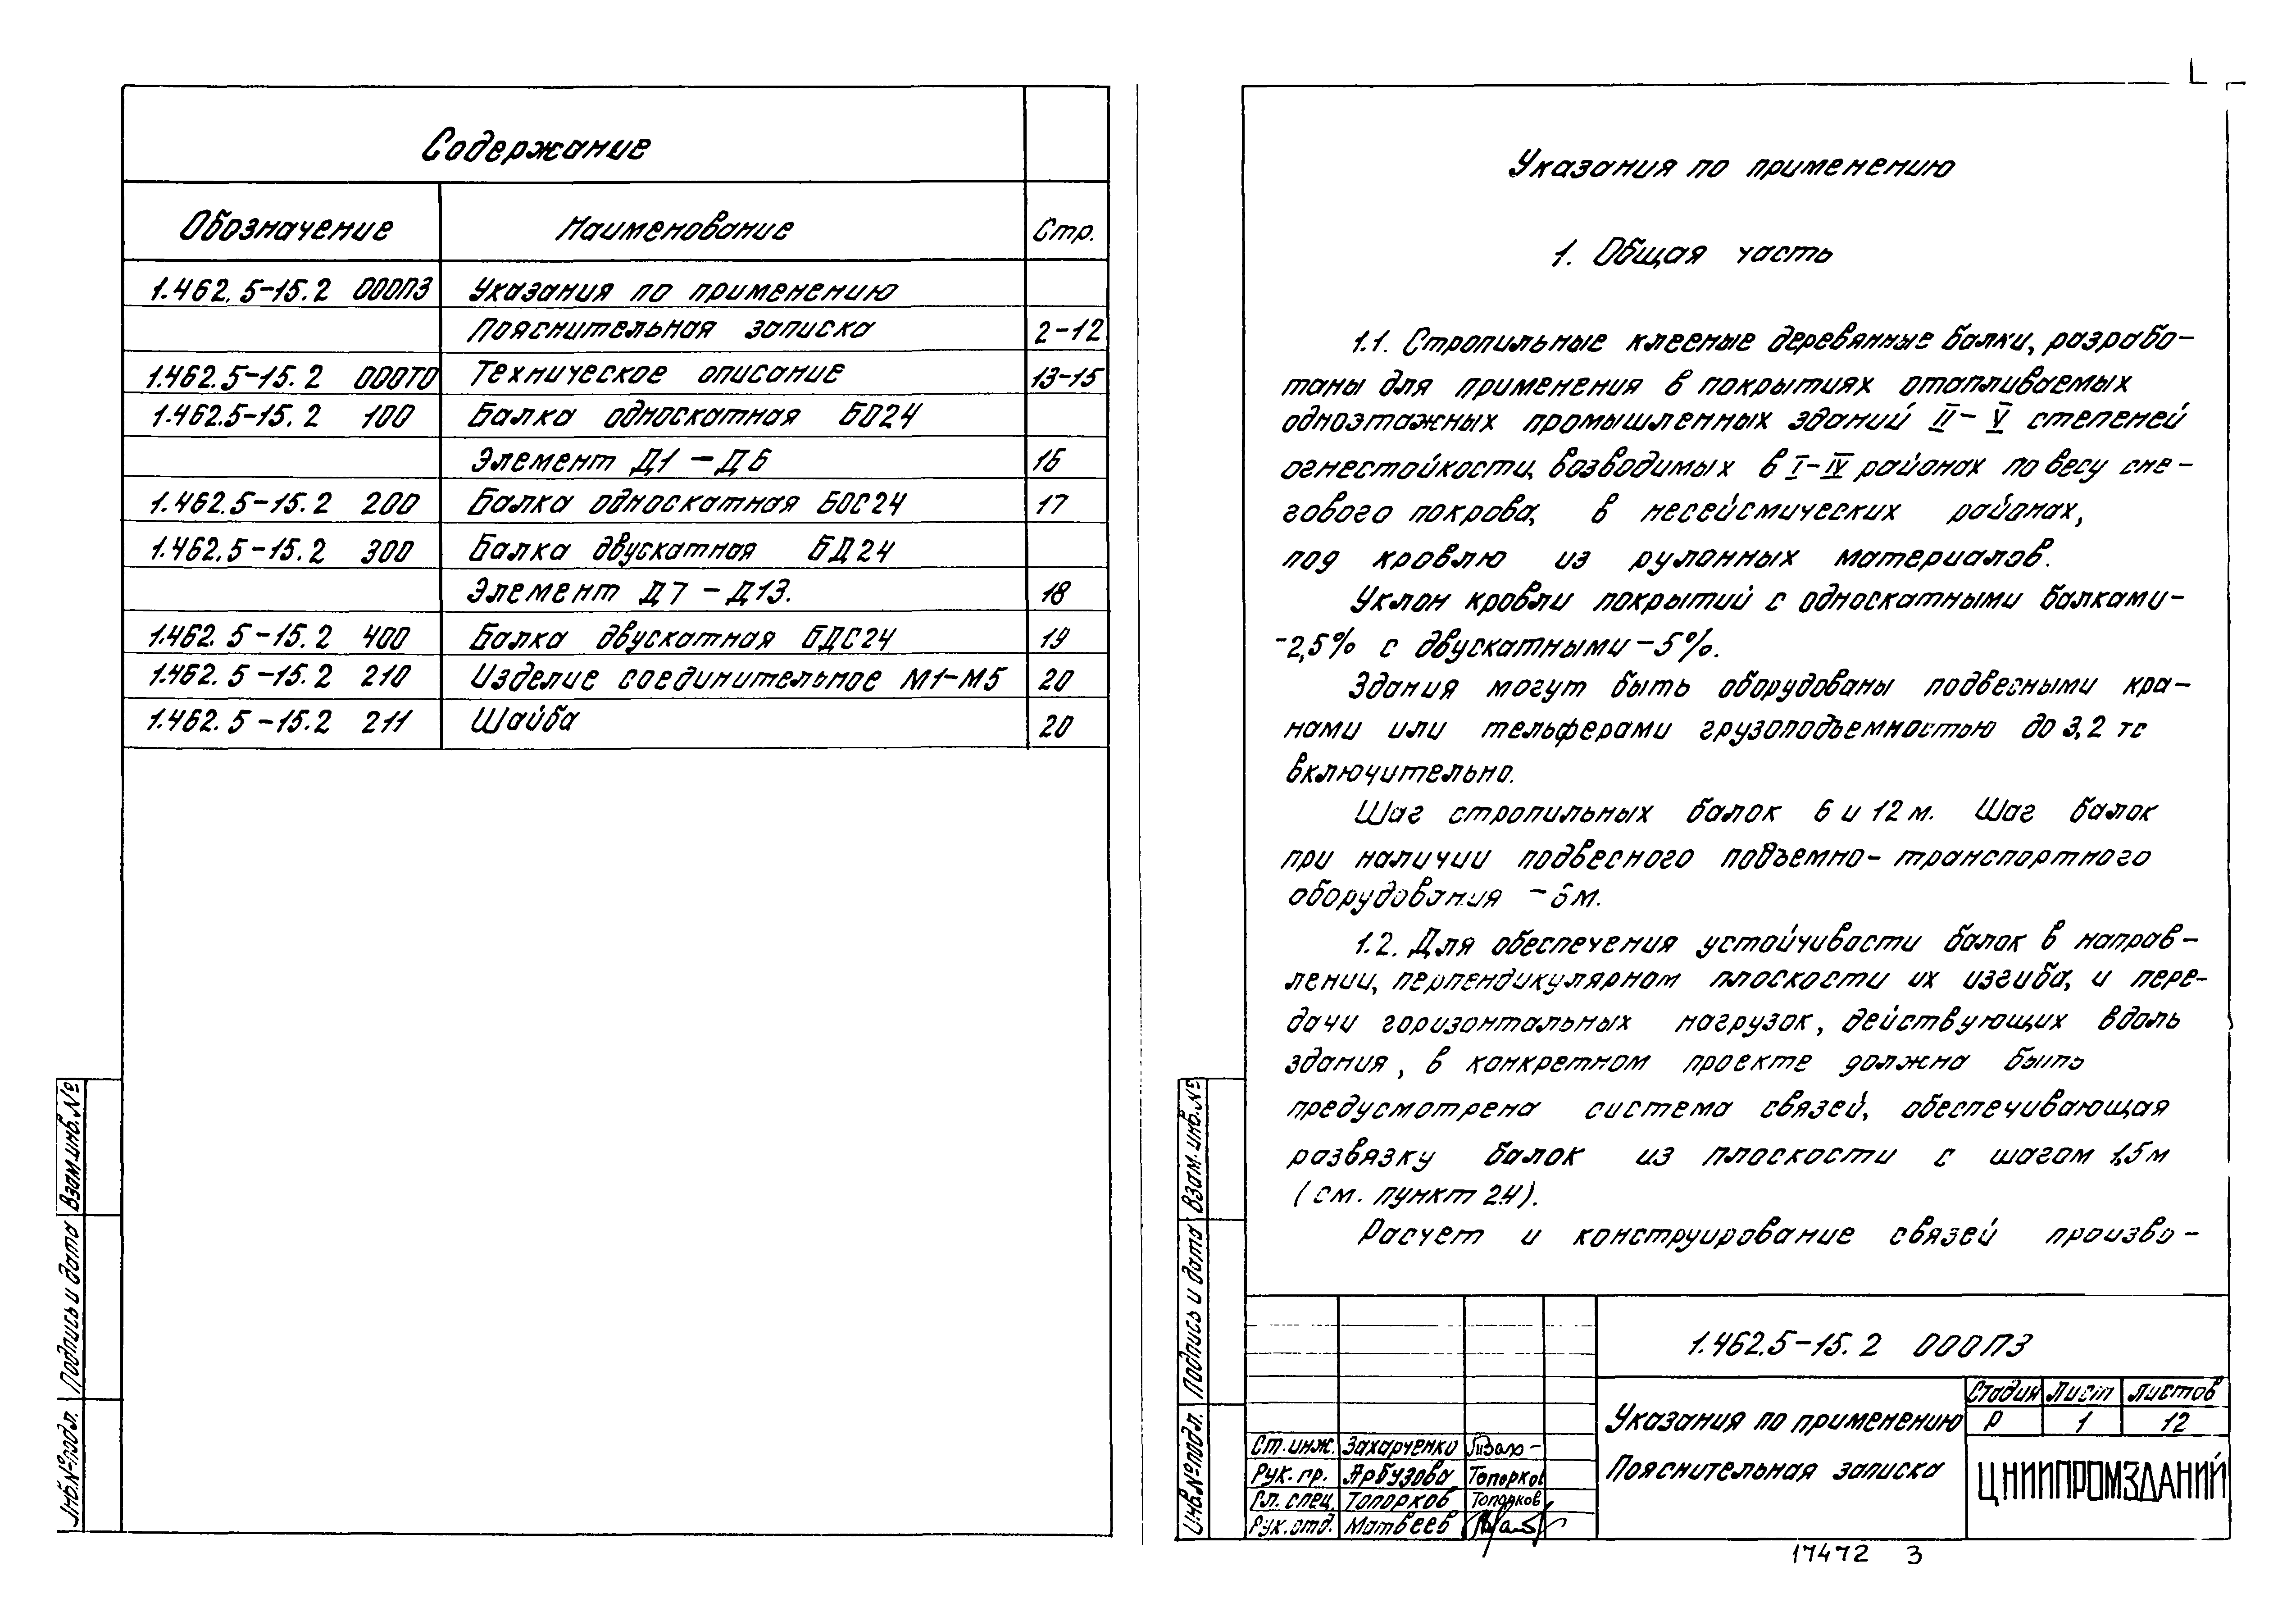 Содержание
Обозначение Наименование Стр.
1.462.5-15.2 000ПЗ Указания по применению
Пояснительная записка 2-12
1.462.5-15.2 000ТО Техническое описание 13-15
1.462.5-15.2 100 Балка односкатная БО24
Элемент Д1 - Д6 16
1.462.5-15.2 200 Балка односкатная БОС24 17
1.462.5-15.2 300 Балка двускатная БД24
Элемент Д7 - Д13. 18
1.462.5-15.2 400 Балка двускатная БДС24 19
1.462.5-15.2 210 Изделие соединительное М1-М5 20
1.462.5-15.2 211 Шайба 20
Инв.№подл. Подпись и дата Взам.инв.№
Указания по применению
1. Общая часть
1.1. Стропильные клееные деревянные балки, разрабо-
таны для применения в покрытиях отапливаемых
одноэтажных промышленных зданий II-V степеней
огнестойкости, возводимых в I-IV районах по весу сне-
гового покрова, в несейсмических районах,
под кровлю из рулонных материалов.
Уклон кровли покрытий с односкатными балками-
-2,5% с двускатными-5%.
Здания могут быть оборудованы подвесными кра-
нами или тельферами грузоподъемностью до 3,2 тс
включительно.
Шаг стропильных балок 6 и 12 м. Шаг балок
при наличии подвесного подъемно-транспортного
оборудования - 6м.
1.2. Для обеспечения устойчивости балок в направ-
лении, перпендикулярном плоскости их изгиба, и пере-
дачи горизонтальных нагрузок, действующих вдоль
здания, в конкретном проекте должна быть
предусмотрена система связей, обеспечивающая
развязку балок из плоскости с шагом 1,5м
(см. пункт 2.4).
Расчет и конструирование связей произво-
Инв.№подл. Подпись и дата Взам.инв.№
1.462.5-15.2 000ПЗ
Указания по применению
Пояснительная записка
Стадия Лист Листов
Р 1 12
ЦНИИПРОМЗДАНИЙ
Ст.инж. Захарченко
Рук.гр. Арбузова Топорков
Гл. спец. Топорков Топорков
Рук.отд. Матвеев
17472 3